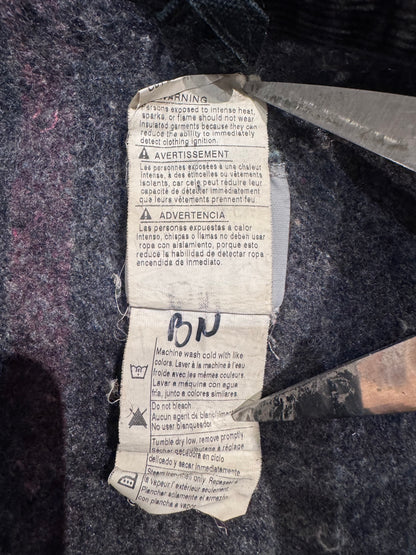 WARNING
Persons exposed to intense heat,
sparks, or flame should not wear
insulated garments because they can
reduce the ability to immediately
detect clothing ignition.
AVERTISSEMENT
Les personnes exposées à une chaleur
intense, à des étincelles ou vêtements
isolants, car cela peut réduire leur
capacité de détecter immédiatement
que leurs vêtements prennent feu.
ADVERTENCIA
Las personas expuestas a calor
intenso, chispas o llamas no deben usar
ropa con aislamiento, porque esto
reduce la habilidad de detectar ropa
encendida de inmediato.
BN
Machine wash cold with like
colors. Laver à la machine à l'eau
froide avec les mêmes couleurs.
Lavar a máquina con agua
fría, junto a colores similares.
Do not bleach.
Aucun agent de blanchiment
No usar blanqueador
Tumble dry low, remove promptly
Sécher
delicado y secar inmediatamente
only.
à vapeur l'extérieur seulement.
Planchar solamente el
con plancha a vapor